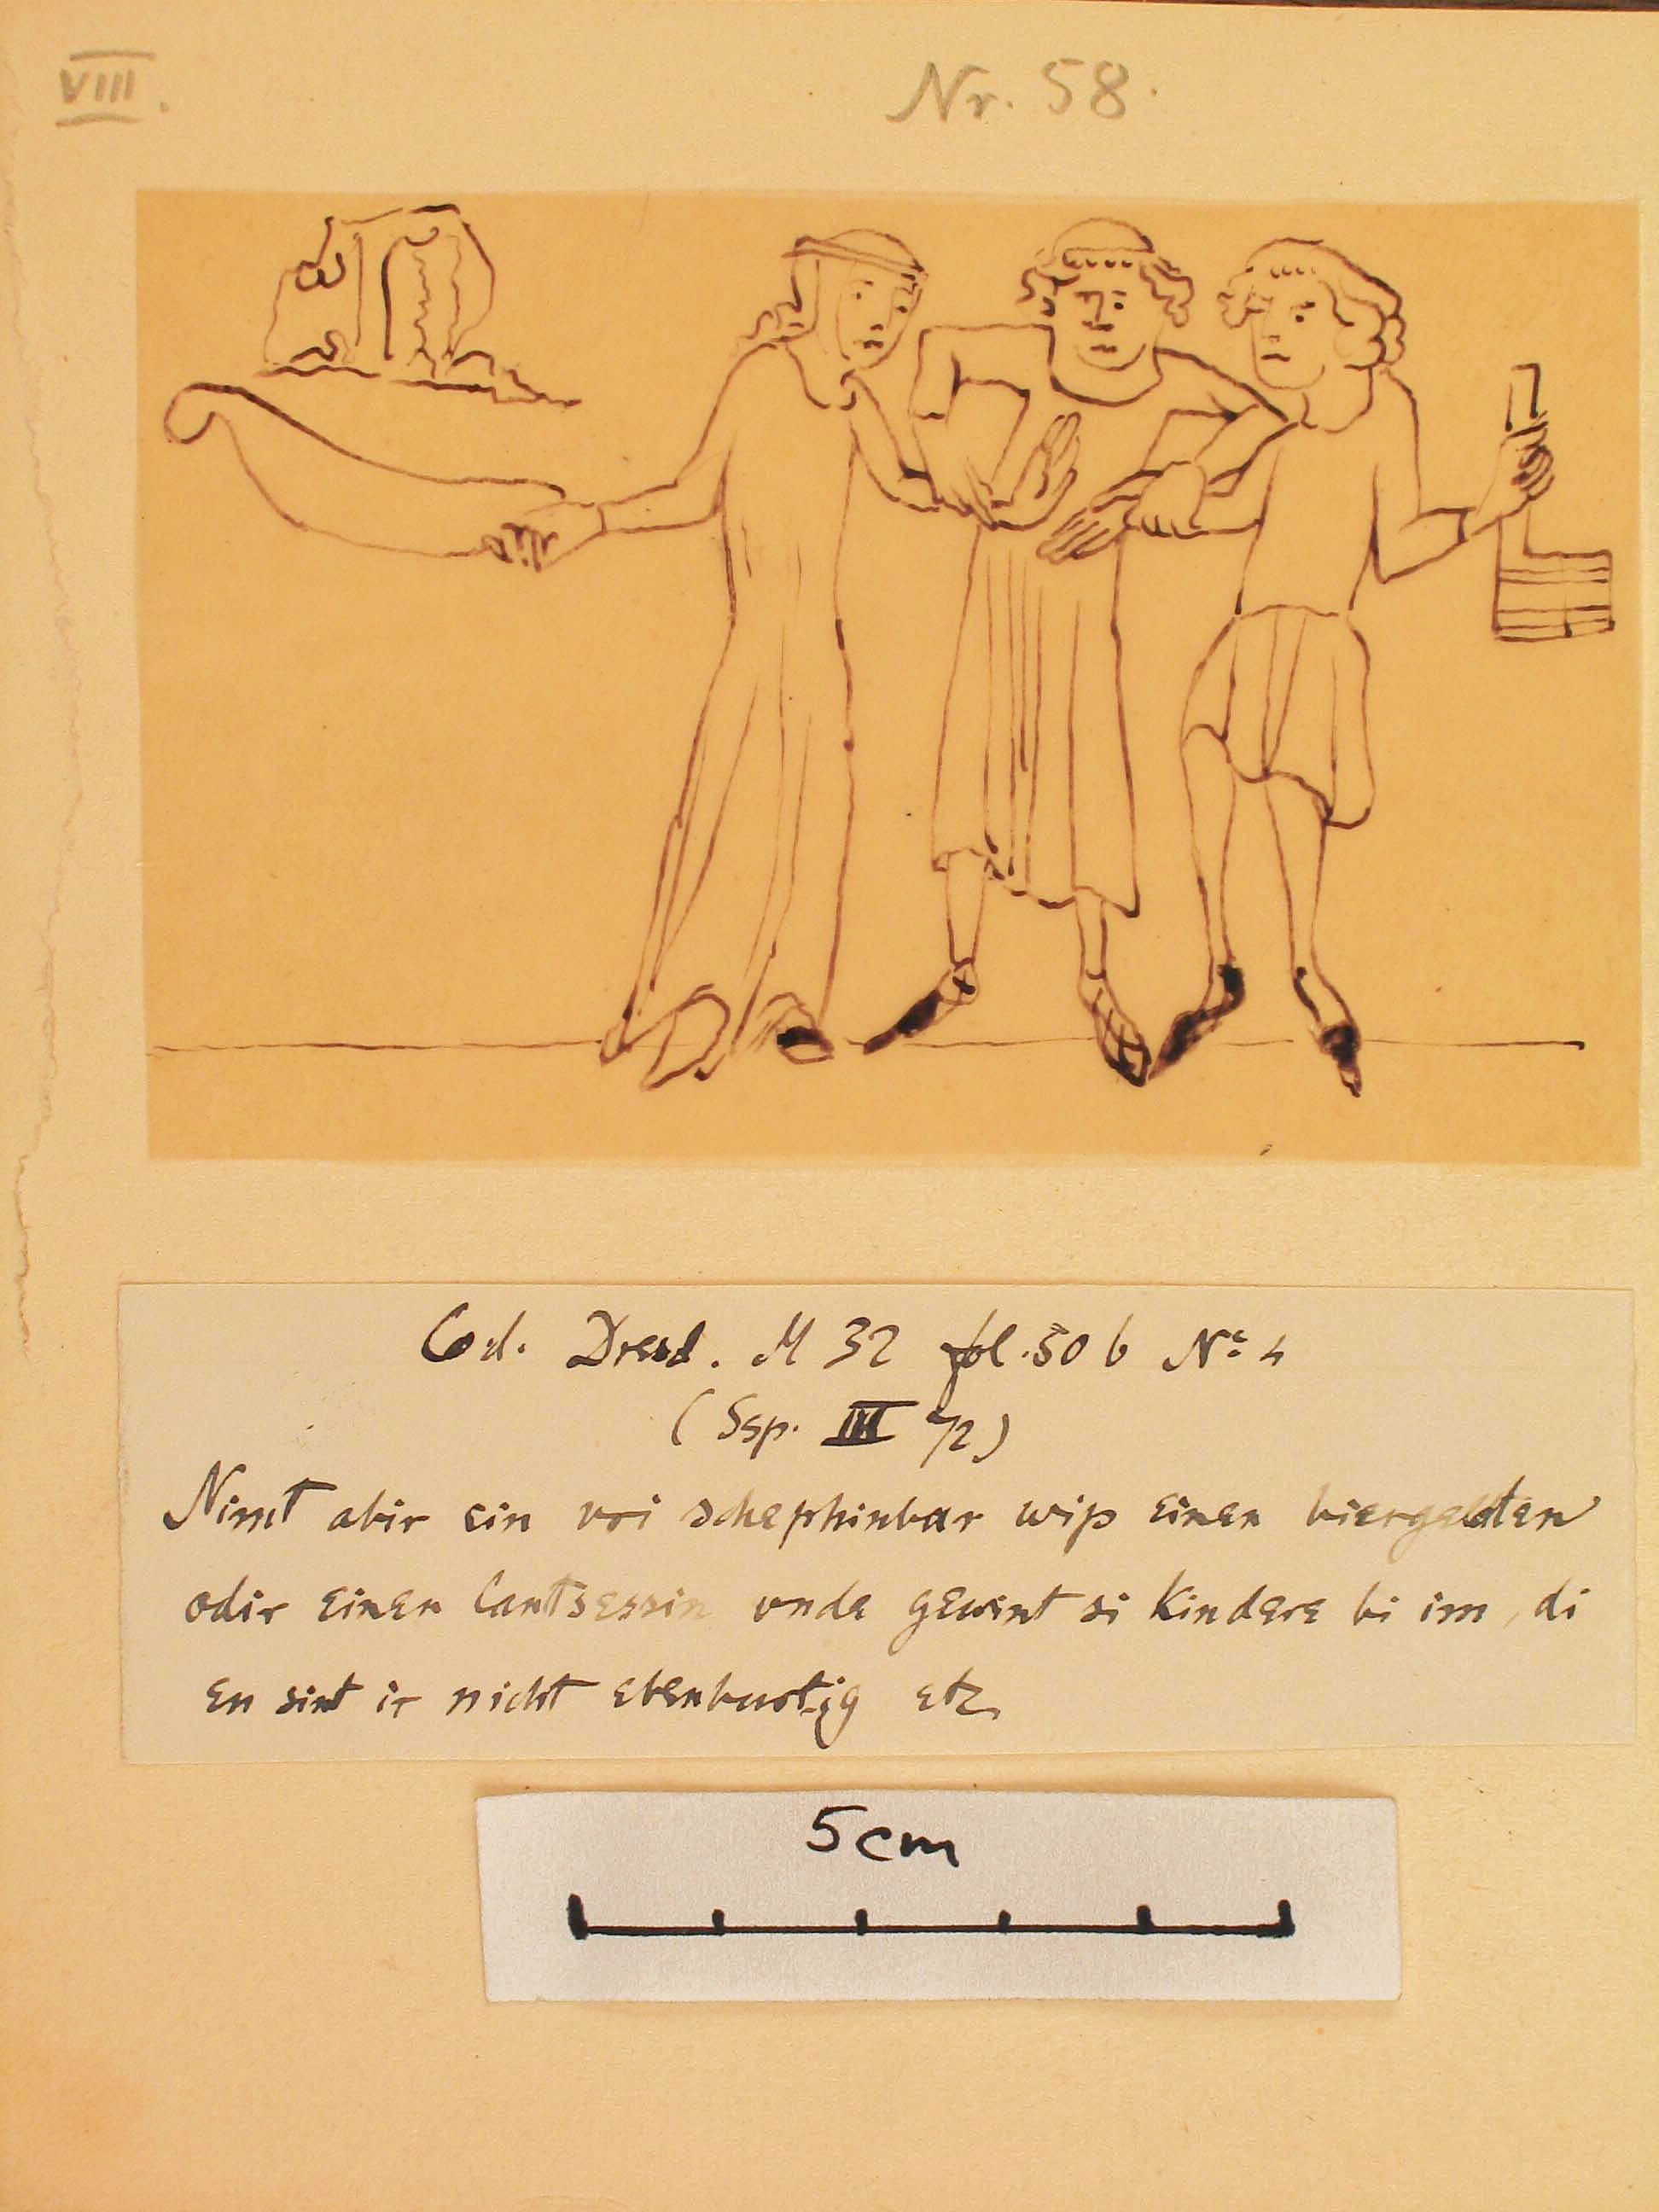 VIII.
Nr. 58.
Cod. Dresd. M 32 fol. 50 b N° 4
(Ssp. III 72)
Nimt abir ein vri schephinbar wip einen biergelden
odir einen lantsessin unde gewint si kindere bi im, di
en sint ir nicht ebenburtig etz.
5cm